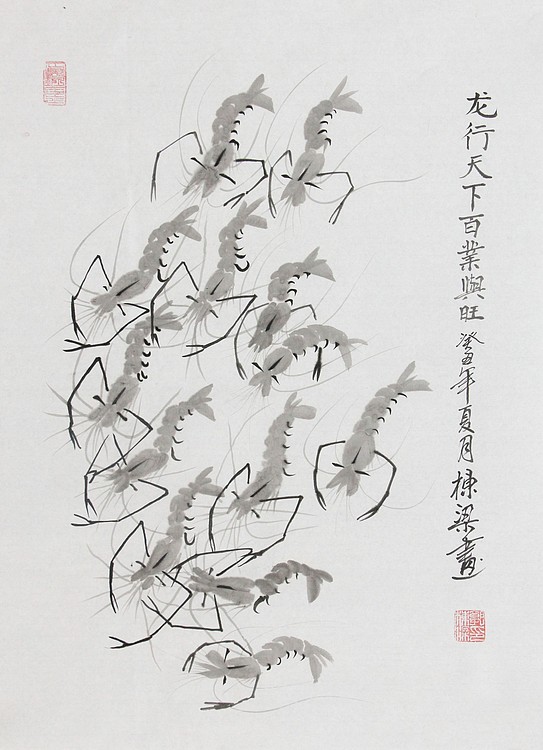 龙行天下百業與旺 癸丑年夏月 棟梁畫